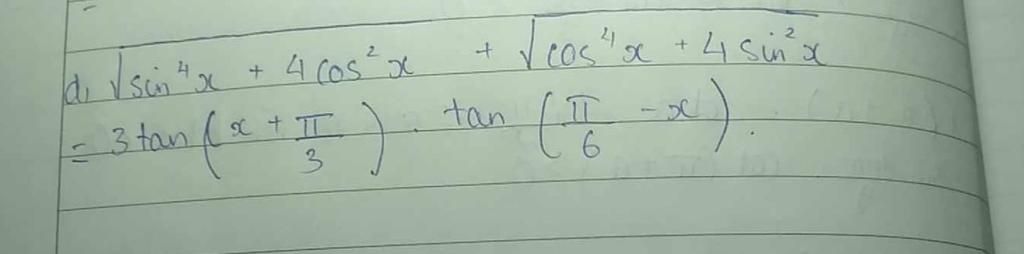 d, √sin⁴x + 4cos²x + √cos⁴x + 4sin²x
= 3tan(x + π/3) . tan(π/6 - x).